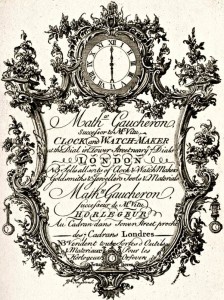 Math.w Gaucheron,
Successor to Mr. Vitu
CLOCK and WATCH-MAKER
at the Dial in Tower Street near ye Dials
LONDON
NB. Sells all sorts of Clock & Watch Makers
Goldsmiths & Jewellers Tools & Materials
Math.w Gaucheron,
Successeur de Mr. Vitu
HORLEGEUR
Au Cadran dans Tower Street proche
des 7 Cadrans Londres
NB Vendent toutes sortes d'Outils
& Materiaux Pour les
Horlogeurs Orfevres